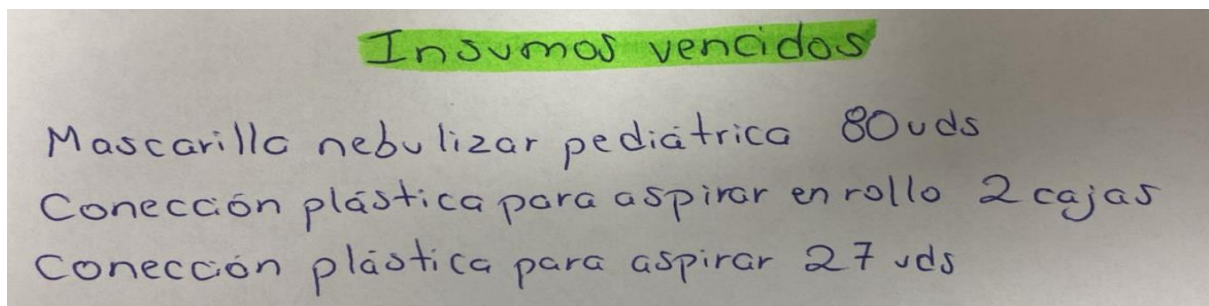 Insumos vencidos
Mascarilla nebulizar pediátrica 80 uds
Conección plástica para aspirar en rollo 2 cajas
Conección plástica para aspirar 27 uds